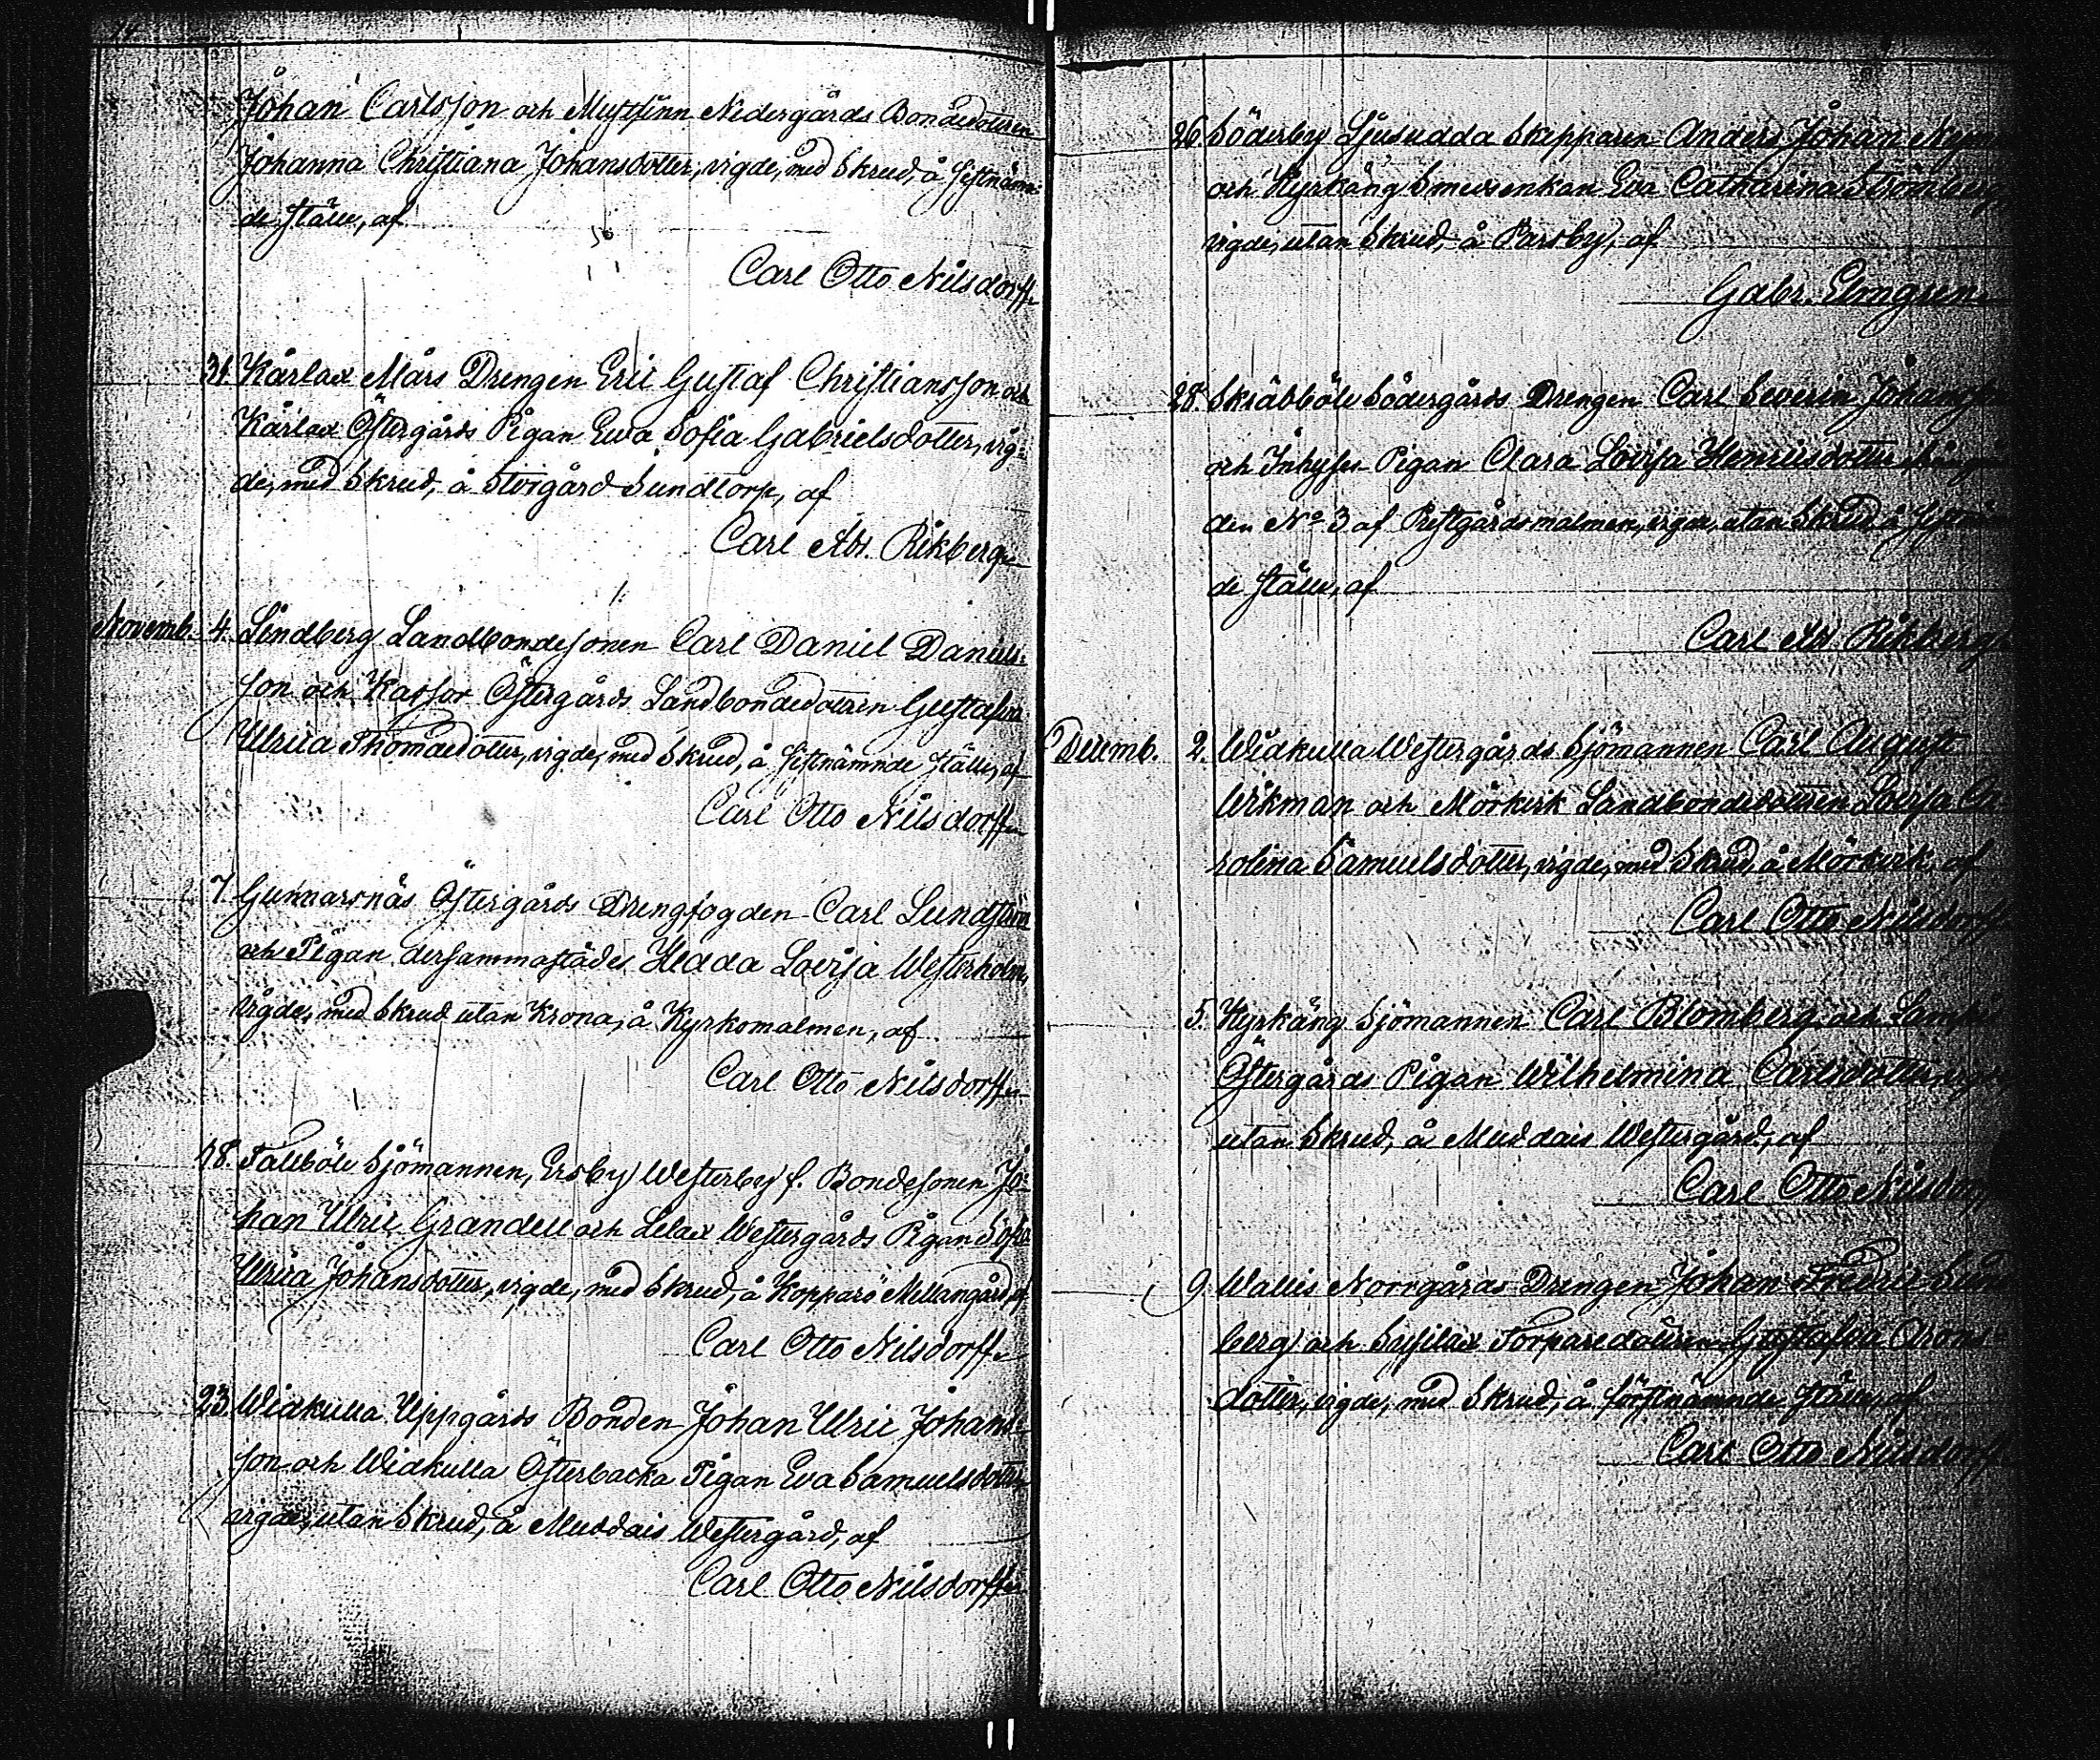 Johan Carlsson och Nedergårds Bondedottren
Johanna Christiana Johansdotter, vigde, med Skrud, å sistnämn-
de ställe, af
Carl Otto Nilsdorff
31. Kårlax Mårs Drengen Eric Gustaf Christiansson och
Kårlax Östergårds Pigan Ewa Sofia Gabrielsdotter, vig-
de, med Skrud, å Storgård Sundtorp, af
Carl Abr. Rikberg
Novemb. 4. Lindberg Landbondesonen Carl Daniel Daniels-
son och Kassor Östergårds Landbondedottren Gustafva
Ulrica Thomaedotter, vigde, med Skrud, å sistnämnde ställe, af
Carl Otto Nilsdorff
7. Gunnarsnäs Östergårds Drengfogden Carl Lundström
och Pigan dersammastädes Hedda Lovisa Westerholm,
vigde, med Skrud utan Krona, å Kyrkomalmen, af
Carl Otto Nilsdorff
18. Tallböle Sjömannen, Ersby Westerby f. Bondesonen Jo-
han Ulric Grandell och Lelax Westergårds Pigan Sofia
Ulrica Johansdotter, vigde, med Skrud, å Kopparö Mellangård, af
Carl Otto Nilsdorff
23. Widkulla Uppgårds Bonden Johan Ulric Johans-
son och Widkulla Österbacka Pigan Eva Samuelsdotter
vigde, utan Skrud, å Muddais Westergård, af
Carl Otto Nilsdorff
26. Söderby Ljusudda Skepparen Anders Johan
och Kyrkäng Smedsenkan Eva Catharina Strömberg,
vigde, utan Skrud, å Parsby, af
Gabr. Elmgren
28. Skräbböle Södergårds Drengen Carl Severin
och Inhyses Pigan Clara Lovisa Henricsdotter
den No 3 af Prestgårdsmalmen, vigde, utan Skrud å
de ställe, af
Carl Abr. Rikberg
Decemb. 2. Widkulla Westergårds Sjömannen Carl August
Wikman och Mörkirk Landbondedottren Lovisa Ca
rolina Samuelsdotter, vigde, med Skrud, å Mörkirk, af
Carl Otto Nilsdorff
5. Kyrkäng Sjömannen Carl Blomberg och
Östergårds Pigan Wilhelmina Carlsdotter,
utan Skrud, å Muddais Westergård, af
Carl Otto Nilsdorff
9. Wallis Norrgårds Drengen Johan Fredric
berg och Torparedottren Gustafva Arons-
dotter, vigde, med Skrud, å förstnämnde ställe, af
Carl Otto Nilsdorff